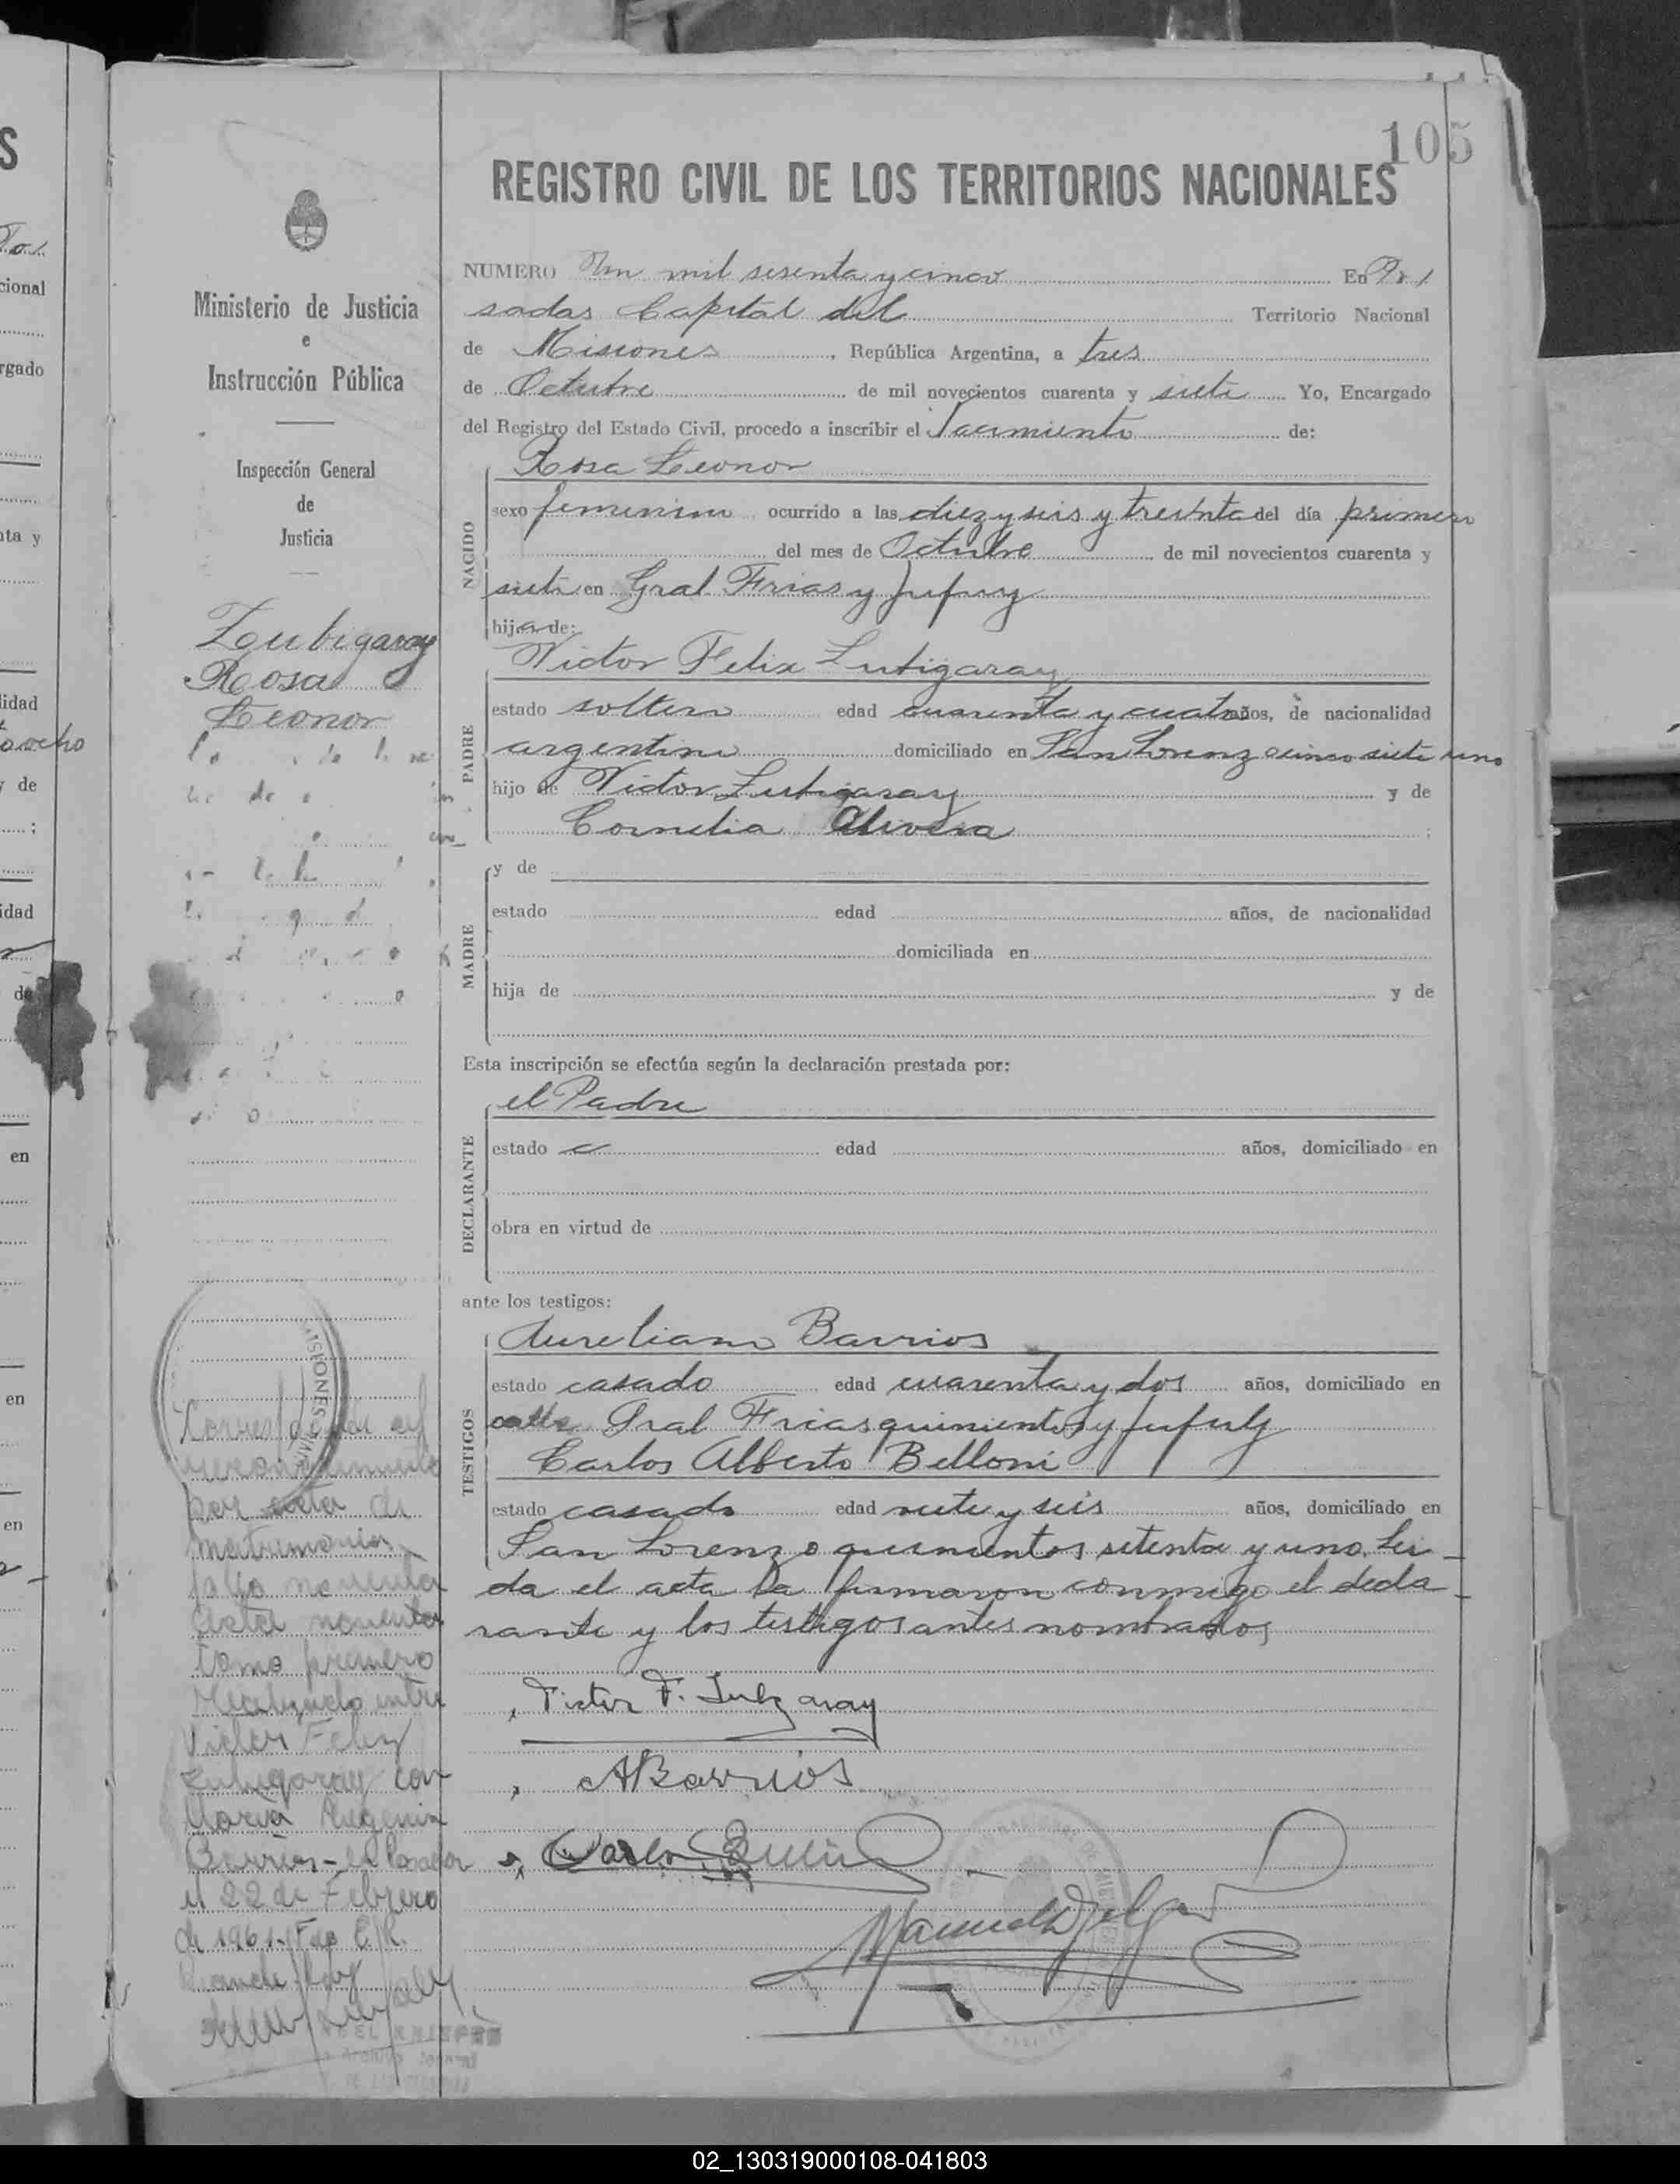 105
REGISTRO CIVIL DE LOS TERRITORIOS NACIONALES
Ministerio de Justicia
e
Instrucción Pública
Inspección General
de
Justicia
Zubigaray
Rosa
Leonor
NUMERO Un mil sesenta y cinco En Po
sadas Capital del Territorio Nacional
de Misiones, República Argentina, a tres
de Octubre de mil novecientos cuarenta y siete Yo, Encargado
del Registro del Estado Civil, procedo a inscribir el Nacimiento de:
NACIDO
Rosa Leonor
sexo femenino ocurrido a las diez y seis y treinta del día primero
del mes de Octubre de mil novecientos cuarenta y
siete en Gral Frias y Jujuy
hija de:
PADRE
Victor Felix Zubigaray
estado soltero edad cuarenta y cuatro años, de nacionalidad
argentino domiciliado en San Lorenzo cinco siete uno
hijo de Victor Zubigaray y de
Cornelia Olivera
MADRE
y de
estado edad años, de nacionalidad
domiciliada en
hija de y de
Esta inscripción se efectúa según la declaración prestada por:
DECLARANTE
el Padre
estado edad años, domiciliado en
obra en virtud de
ante los testigos:
TESTIGOS
Aureliano Barrios
estado casado edad cuarenta y dos años, domiciliado en
calle Gral Frias quinientos y Jujuy
Carlos Alberto Belloni
estado casado edad veite y seis años, domiciliado en
San Lorenzo quinientos setenta y uno. Lei-
da el acta la firmaron conmigo el decla-
rante y los testigos antes nombrados
Victor F. Zubigaray
ABarrios
Carlos
Manuel
MISIONES
reconocimiento
por acta de
matrimonio
folio noventa
Acta noventa
tomo primero
Realizado entre
Victor Felix
Zubigaray con
Maria Eugenia
Barrios - en Posadas
el 22 de Febrero
de 1961. Fdo E. R.
02_130319000108-041803